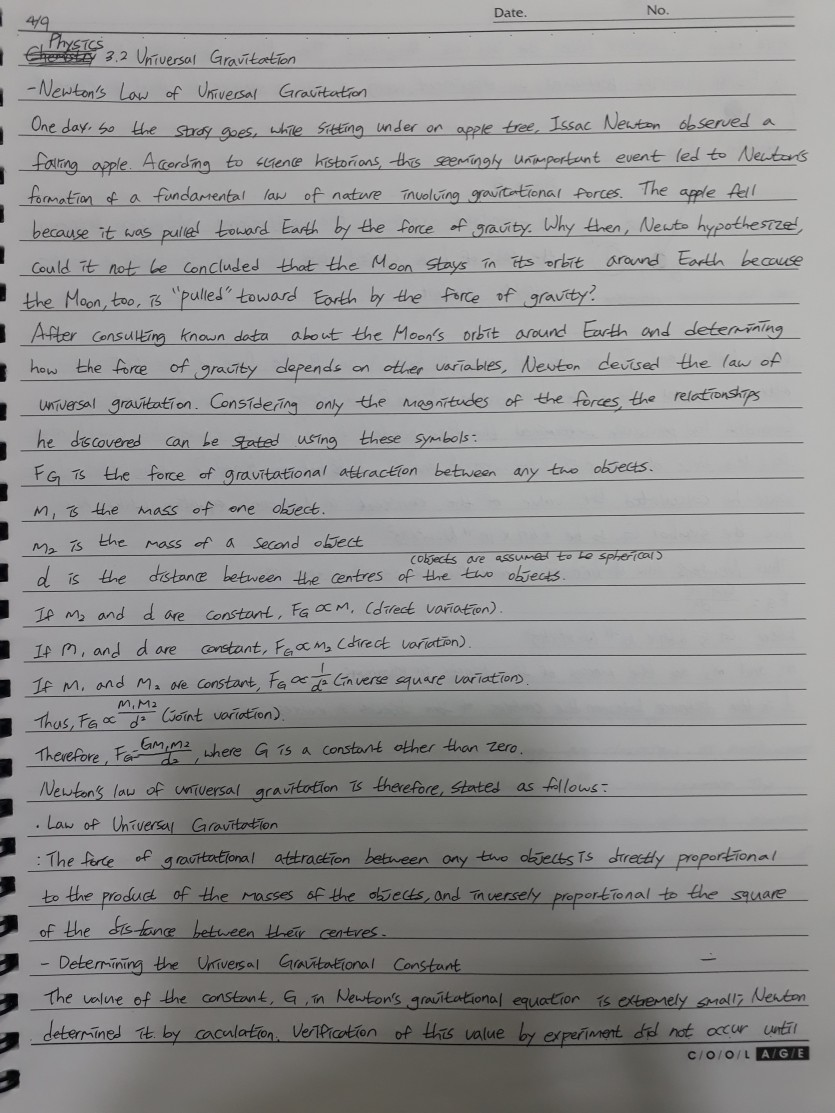 Date. No.
4/9
Physics
Chemistry 3.2 Universal Gravitation
-Newton's Law of Universal Gravitation
One day, so the stroy goes, while sitting under on apple tree, Issac Newton observed a
falling apple. According to science historians, this seemingly unimportant event led to Newton's
formation of a fundamental law of nature involving gravitational forces. The apple fell
because it was pulled toward Earth by the force of gravity. Why then, Newto hypothesized,
could it not be concluded that the Moon stays in its orbit around Earth because
the Moon, too, is "pulled" toward Earth by the force of gravity?
After consulting known data about the Moon's orbit around Earth and determining
how the force of gravity depends on other variables, Newton devised the law of
universal gravitation. Considering only the magnitudes of the forces, the relationships
he discovered can be stated using these symbols:
FG is the force of gravitational attraction between any two objects.
M₁ is the mass of one object.
M₂ is the mass of a second object
(objects are assumed to be spherical)
d is the distance between the centres of the two objects.
If M₂ and d are constant, FG ∝ M₁ (direct variation).
If M₁ and d are constant, FG ∝ M₂ (direct variation).
If M₁ and M₂ are constant, FG ∝ 1/d² (inverse square variation).
Thus, FG ∝ M₁M₂/d² (joint variation).
Therefore, FG = GM₁M₂/d², where G is a constant other than zero.
Newton's law of universal gravitation is therefore, stated as follows:
· Law of Universal Gravitation
: The force of gravitational attraction between any two objects is directly proportional
to the product of the masses of the objects, and inversely proportional to the square
of the distance between their centres.
- Determining the Universal Gravitational Constant
The value of the constant, G, in Newton's gravitational equation is extremely small; Newton
determined it by caculation. Verification of this value by experiment did not occur until
C/O/O/L A/G/E